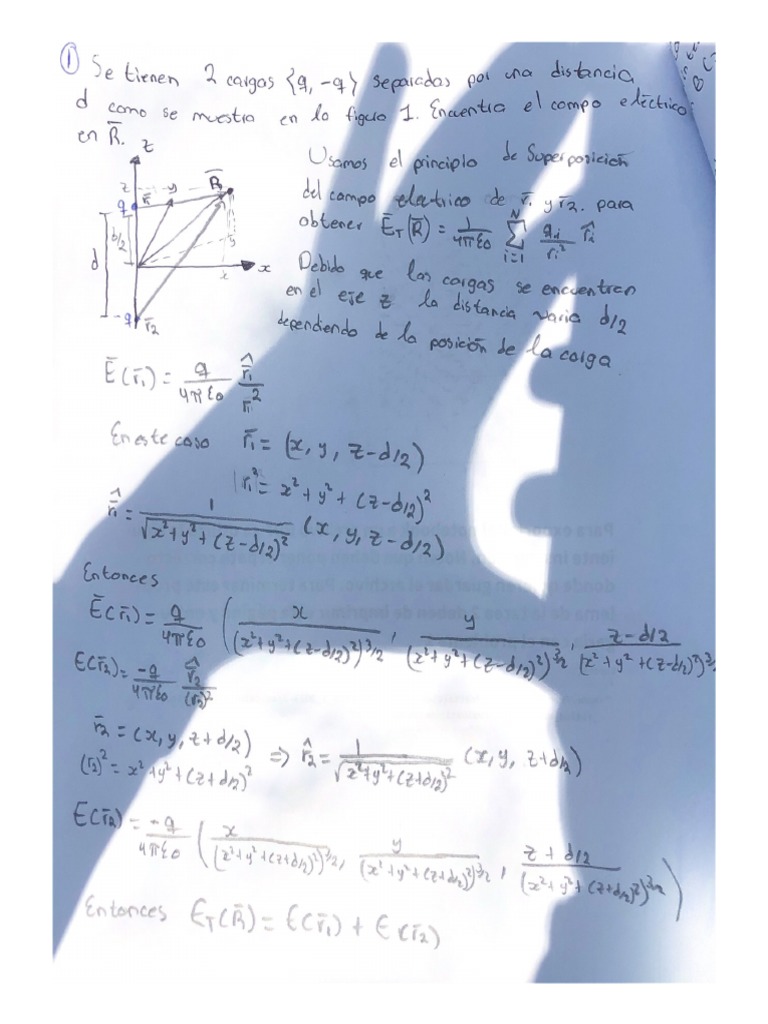 ① Se tienen 2 cargas {q, -q} separadas por una distancia
d como se muestra en la figura 1. Encuentra el campo eléctrico
en R̄.
z
z y R̄
q r̄₁
d/2
d
y
x x
-q r̄₂
Usamos el principio de Superposición
del campo electrico de r̄₁ y r̄₂. para
obtener Ē_T(R̄) = 1/4πε₀ Σ_{i=1}^{N} q_i/r_i² r̂_i
Debido que las cargas se encuentran
en el eje z la distancia varia d/2
dependiendo de la posición de la carga
Ē(r̄₁) = q/4πε₀ r̂₁/r̄₁²
En este caso r̄₁ = (x, y, z-d/2)
r₁² = x²+y²+(z-d/2)²
r̂₁ = 1/√(x²+y²+(z-d/2)²) (x, y, z-d/2)
Entonces
Ē(r̄₁) = q/4πε₀ ( x/(x²+y²+(z-d/2)²)^3/2, y/(x²+y²+(z-d/2)²)^3/2, z-d/2/(x²+y²+(z-d/2)²)^3/2
E(r̄₂) = -q/4πε₀ r̂₂/(r₂)²
r̄₂ = (x, y, z+d/2) ⇒ r̂₂ = 1/√(x²+y²+(z+d/2)²) (x, y, z+d/2)
(r₂)² = x²+y²+(z+d/2)²
E(r̄₂) = -q/4πε₀ ( x/(x²+y²+(z+d/2)²)^3/2, y/(x²+y²+(z+d/2)²)^3/2, z+d/2/(x²+y²+(z+d/2)²)^3/2 )
Entonces E_T(R̄) = E(r̄₁) + E(r̄₂)